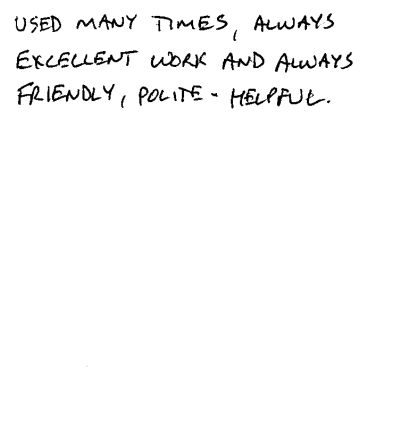 USED MANY TIMES, ALWAYS
EXCELLENT WORK AND ALWAYS
FRIENDLY, POLITE - HELPFUL.